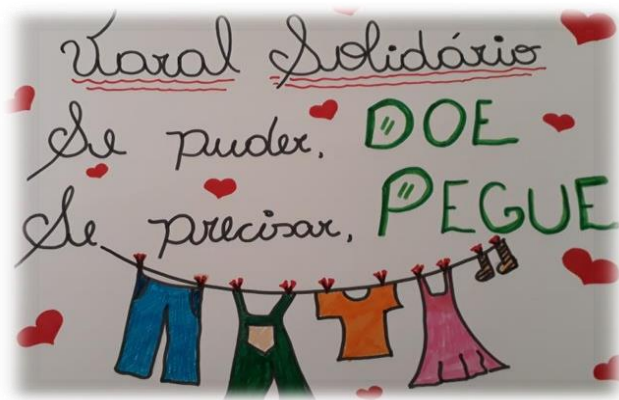 Varal Solidário
Se puder, DOE
Se precisar, PEGUE